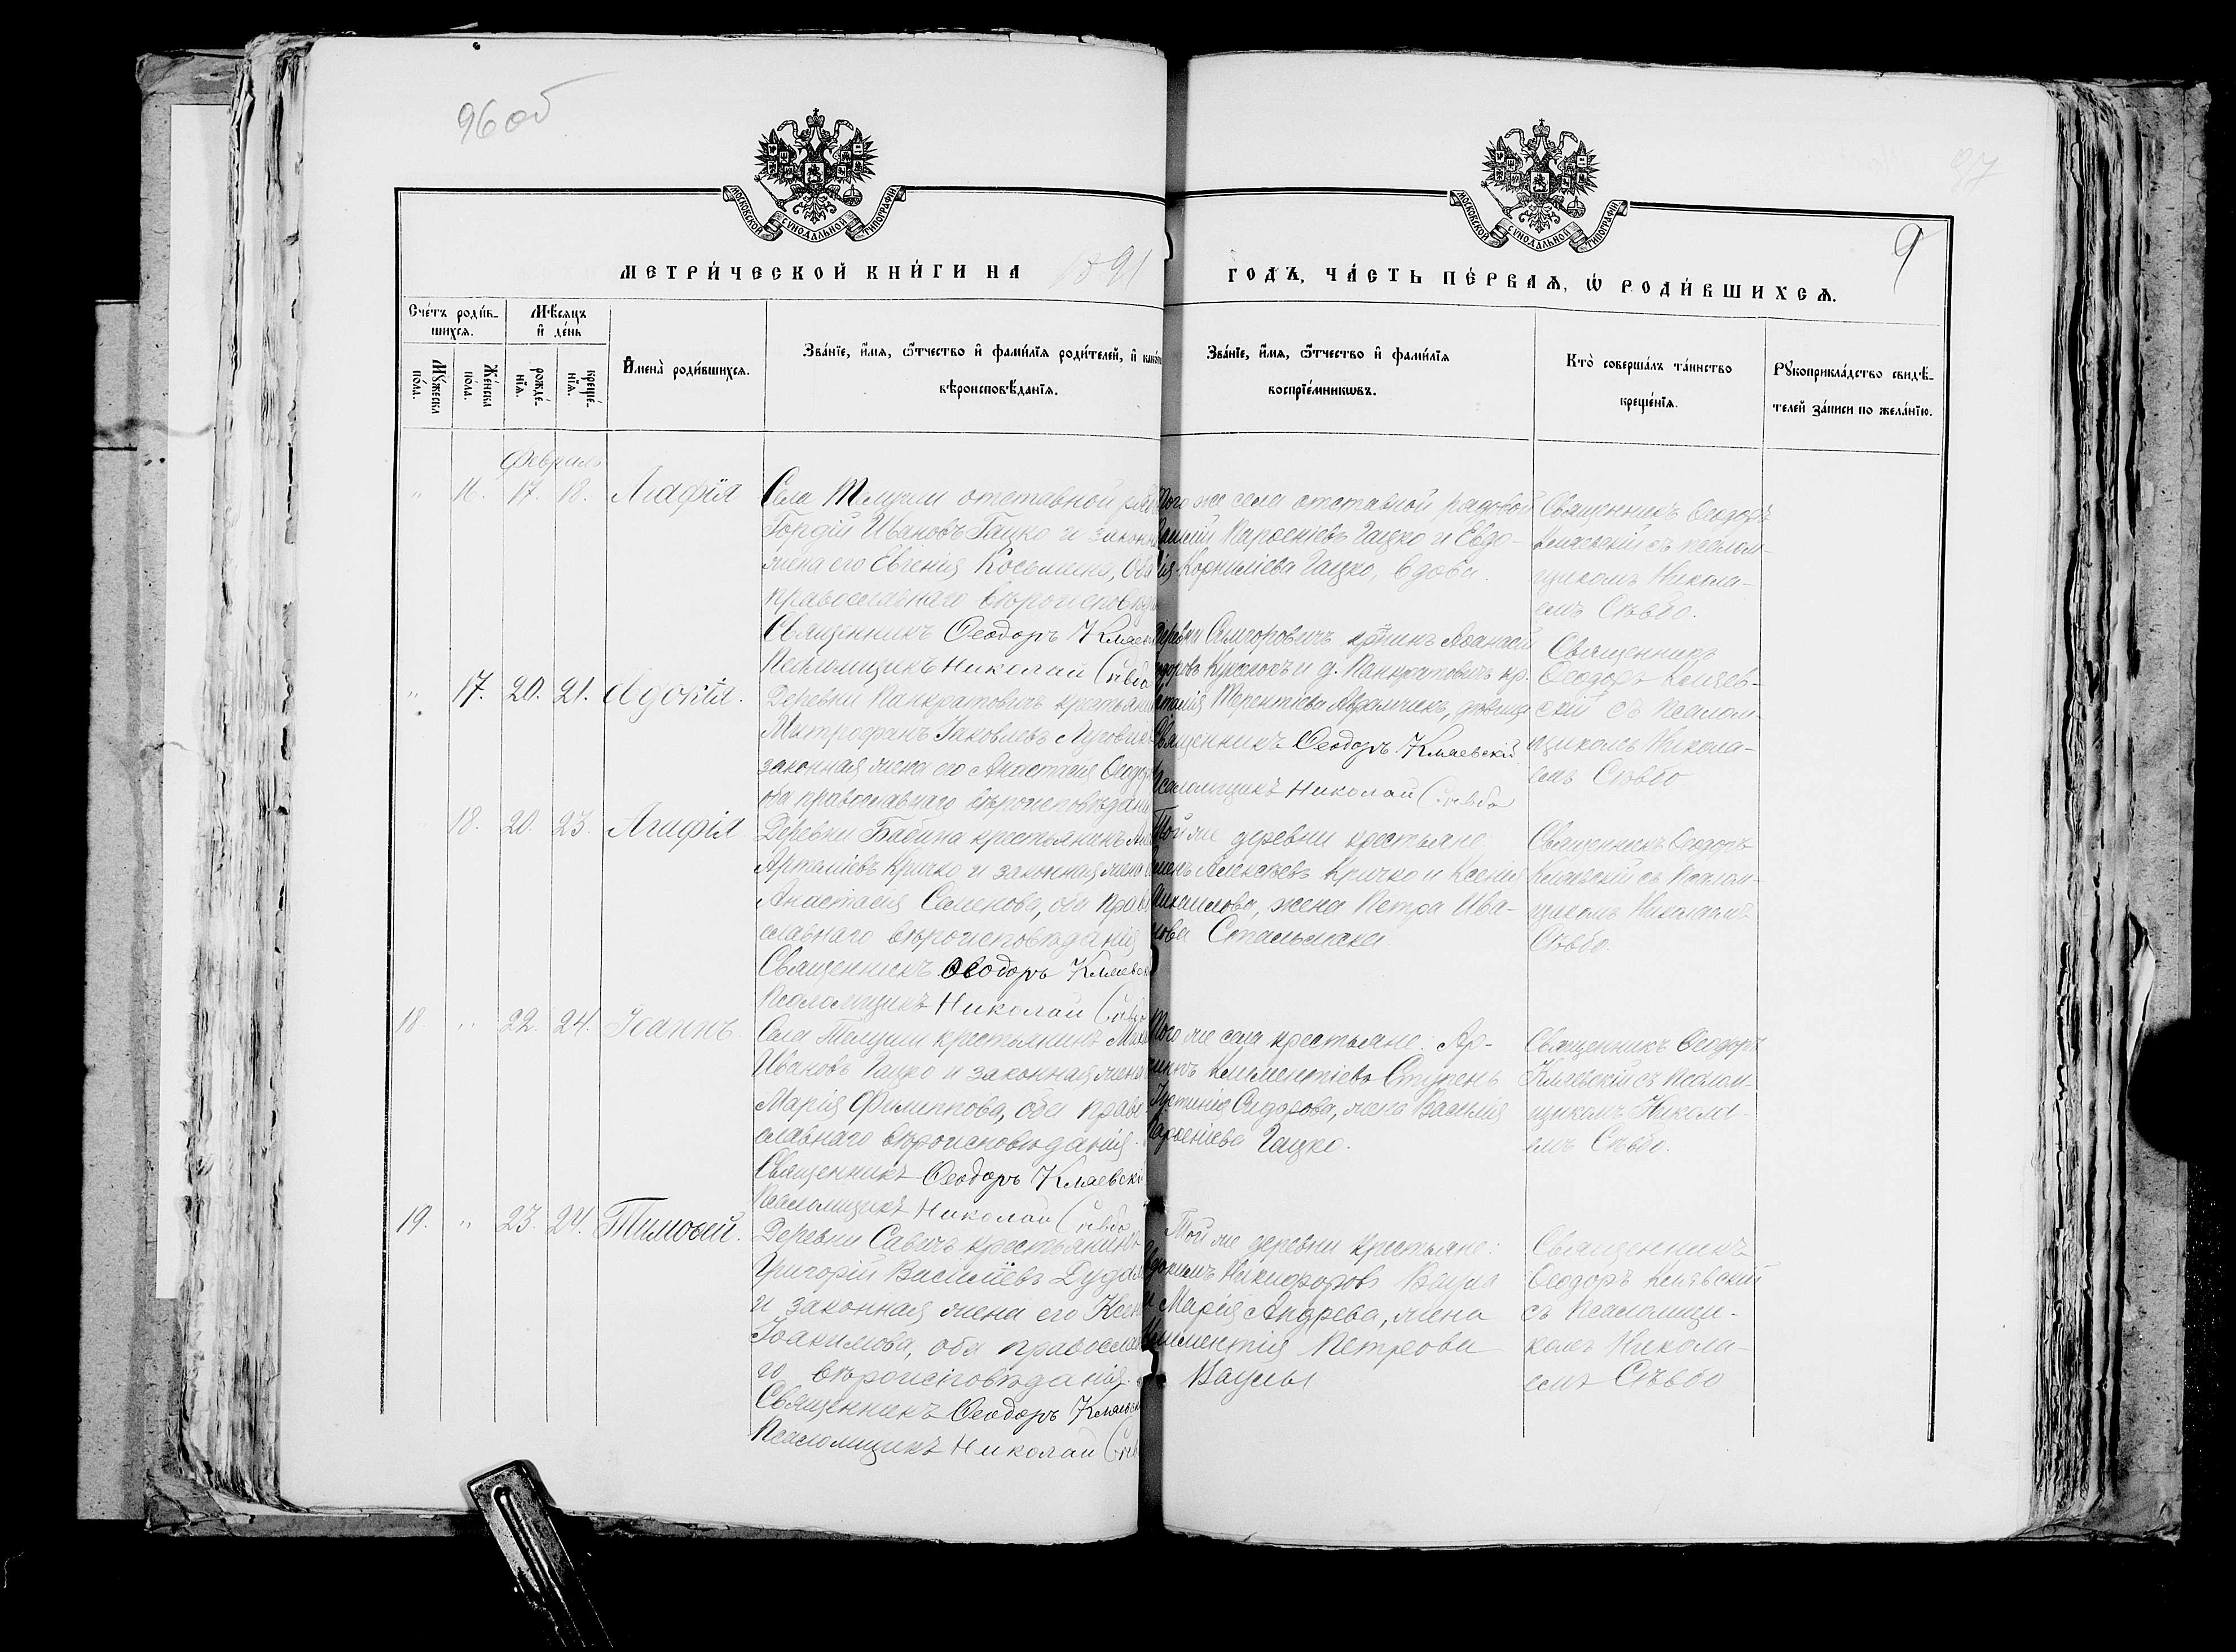 96 об
97
9
МОСКОВСКОЙ СѴНОДАЛЬНОЙ ТИПОГРАФІИ
МОСКОВСКОЙ СѴНОДАЛЬНОЙ ТИПОГРАФІИ
МЕТРИ́ЧЕСКОЙ КНИ́ГИ НА 1891
ГОДЪ, ЧА́СТЬ ПЕ́РВАѦ, Ѡ РОДИ́ВШИХСѦ.
Сче́тъ роди́в-
шихсѧ.
Мꙋ́жеска по́ла.
Же́нска по́ла.
Мѣ́сѧцъ
и҆ де́нь
рожде́-
нїѧ.
креще́-
нїѧ.
И҆мена̀ роди́вшихсѧ.
Зва́нїе, и҆́мѧ, ѻ҆́тчество и҆ фами́лїѧ роди́телей, и҆
вѣроисповѣ́данїѧ.
Зва́нїе, и҆́мѧ, ѻ҆́тчество и҆ фами́лїѧ
воспрїе́мникѡвъ.
Кто̀ соверша́лъ та́инство
креще́нїѧ.
Рꙋкоприкла́дство свидѣ́-
телей за́писи по жела́нїю.
Февраль
" 16. 17. 18. Агафія
Села отставной
Гордій Ивановъ Гацко и законн
жена его Евгенія Косьмина, оба
православнаго вѣроисповѣд
Священникъ Ѳеодоръ Кляев
Псаломщикъ Николай Сѣвбо
того же села отставной рядовой
Парѳеніевъ Гацко и Евдо-
кія Корниліева Гацко, вдова.
Священникъ Ѳеодоръ
Кляевскій съ псалом-
щикомъ Никола-
емъ Сѣвбо.
" 17. 20. 21. Евдокія.
Деревни Панкратовичъ крестьянин
Митрофанъ Іаковлевъ
законная жена его Анастасія Ѳеодор
оба православнаго вѣроисповѣдани
Деревни
и д. Панкратовичъ кр.
Терентіева девица
Священникъ Ѳеодоръ Кляевскій
Псаломщикъ Николай Сѣвбо
Священникъ
Ѳеодоръ Кляев-
скій съ псалом-
щикомъ Никола-
емъ Сѣвбо
18. 20. 23. Агафія
Деревни Бабина крестьянинъ
Артеміевъ Кричко и законная жена
Анастасія Семенова, оба право
славнаго вѣроисповѣданія
Священникъ Ѳеодоръ Кляевск
Псаломщикъ Николай Сѣвбо
Той же деревни крестьяне
Алексѣевъ Кричко и Ксенія
Михаилова, жена Петра Ива-
нова Стальмаха
Священникъ Ѳеодоръ
Кляевскій съ псалом-
щикомъ Николаемъ
Сѣвбо.
18 " 22. 24. Іоаннъ
Села крестьянинъ
Ивановъ Гацко и законная жена
Марія Филиппова, оба право-
славнаго вѣроисповѣданія.
Священникъ Ѳеодоръ Кляевскі
Псаломщикъ Николай Сѣвбо
Того же села крестьяне. Ар-
Климентіевъ Ступень
Іустинія Сидорова, жена Василія
Парѳеніева Гацко.
Священникъ Ѳеодоръ
Кляевскій съ псалом-
щикомъ Никола-
емъ Сѣвбо.
19. " 23. 24. Тимоѳей.
Деревни Савичъ крестьянинъ
Григорій Василіевъ
и законная жена его Ксен
Іоакимова, оба православна
го вѣроисповѣданія.
Священникъ Ѳеодоръ Кляевск
Псаломщикъ Николай Сѣв
Той же деревни крестьяне:
Никифоровъ Ваула
и Марія Андреева, жена
Климентія Петрова
Ваулы
Священникъ
Ѳеодоръ Кляевскій
съ псаломщи-
комъ Никола-
емъ Сѣвбо